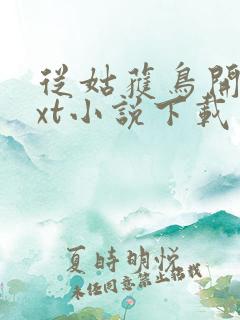 從姑蒦鳥開
xt小說下載
夏時明悅
未经同意禁止搭载